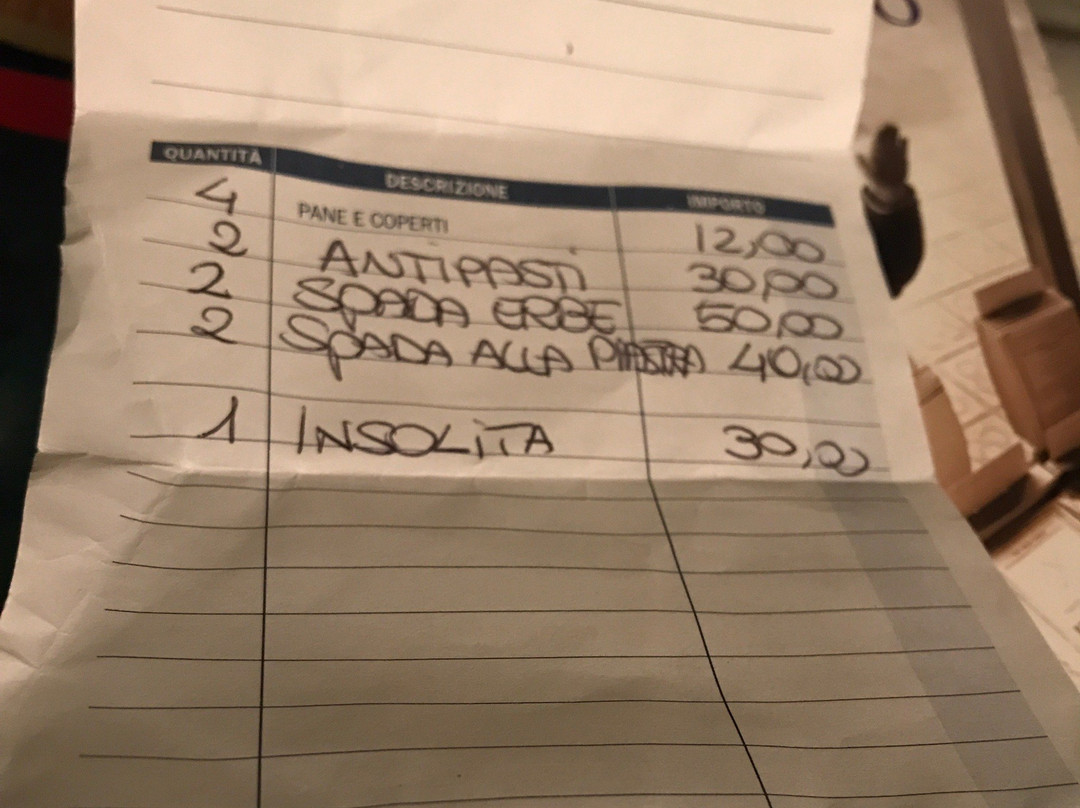 QUANTITÀ DESCRIZIONE IMPORTO
4 PANE E COPERTI 12,00
2 ANTIPASTI 30,00
2 SPADA ERBE 50,00
2 SPADA ALLA PIASTRA 40,00
1 INSOLITA 30,00